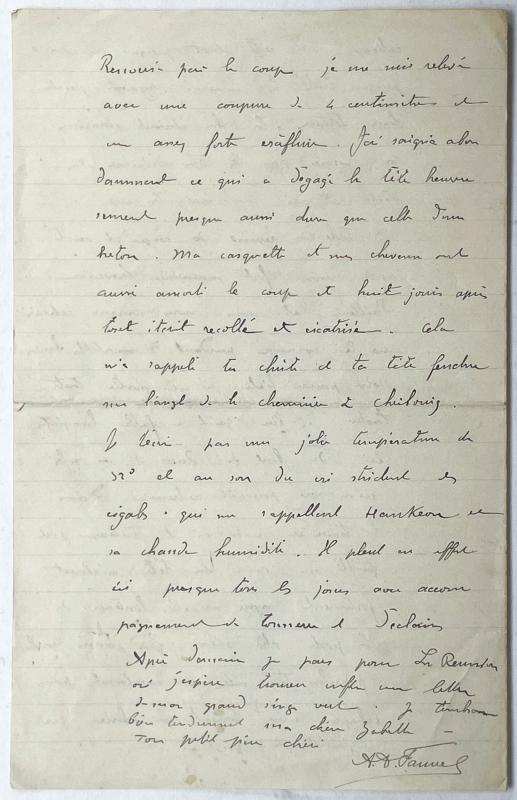 par le coup je me suis relevé
avec une coupure de 4 centimètres et
une assez forte éraflure. J'ai saigné abon
damment ce qui a dégagé la tête heureu
sement presque aussi dure que celle d'un
breton. Ma casquette et mes cheveux ont
aussi amorti le coup et huit jours après
tout était recollé et cicatrisé. Cela
m'a rappelé ta chute et ta tête fendue
sur l'angle de la cheminée à
Je t'écris par une jolie température de
32° et au son du cri strident des
cigales qui me rappellent Hankeou et
sa chaude humidité. Il pleut en effet
ici presque tous les jours avec accom
pagnement de tonnerre et d'éclairs
Après demain je pars pour La Réunion
où j'espère trouver enfin une lettre
de mon grand singe vert. Je t'embrasse
bien tendrement ma chère Zabelle –
Ton petit père chéri